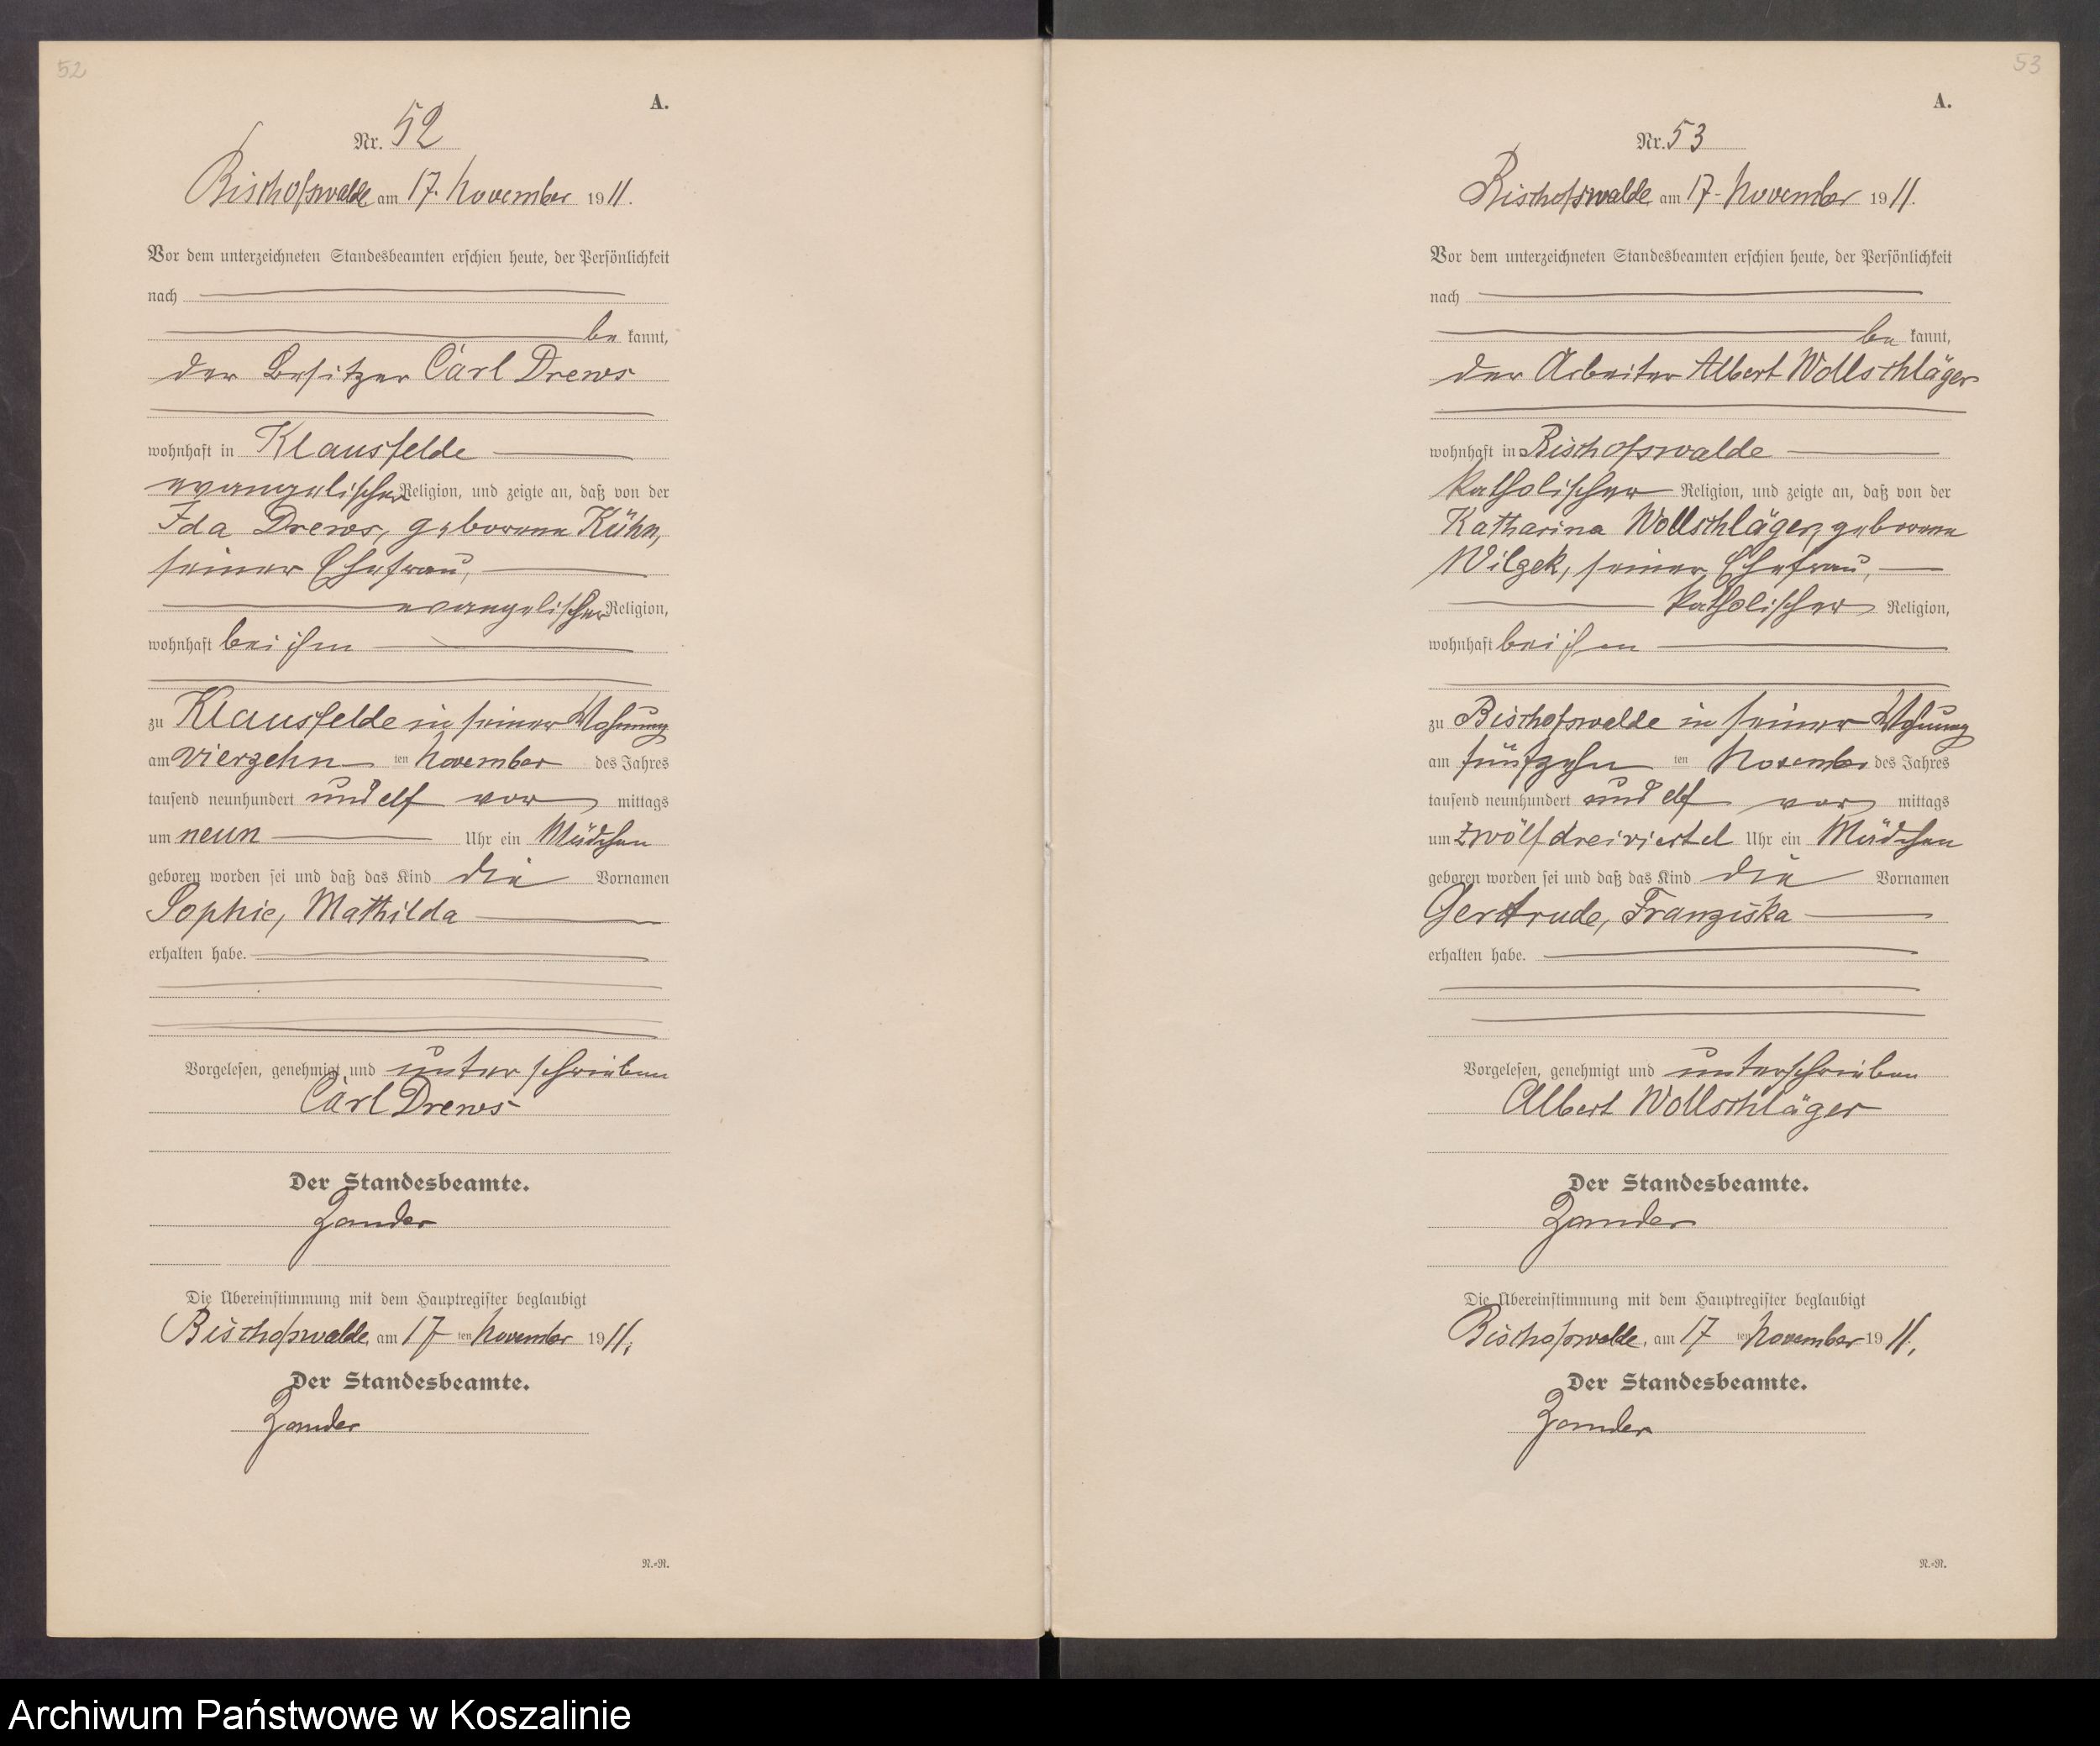 52
A.
Nr. 52
Bischofswalde am 17. November 1911.
Vor dem unterzeichneten Standesbeamten erschien heute, der Persönlichkeit
nach
be kannt,
der Besitzer Carl Drews
wohnhaft in Klausfelde
evangelischer Religion, und zeigte an, daß von der
Ida Drews, geborene Kühn,
seiner Ehefrau,
evangelischer Religion,
wohnhaft bei ihm
zu Klausfelde in seiner Wohnung
am vierzehn ten November des Jahres
tausend neunhundert und elf vor mittags
um neun Uhr ein Mädchen
geboren worden sei und daß das Kind die Vornamen
Sophie, Mathilda
erhalten habe.
Vorgelesen, genehmigt und unterschrieben
Carl Drews
Der Standesbeamte.
Zander
Die Übereinstimmung mit dem Hauptregister beglaubigt
Bischofswalde, am 17 ten November 1911.
Der Standesbeamte.
Zander
N.-N.
53
A.
Nr. 53
Bischofswalde am 17. November 1911.
Vor dem unterzeichneten Standesbeamten erschien heute, der Persönlichkeit
nach
be kannt,
der Arbeiter Albert Wollschläger
wohnhaft in Bischofswalde
katholischer Religion, und zeigte an, daß von der
Katharina Wollschläger, geborene
Wilzek, seiner Ehefrau,
katholischer Religion,
wohnhaft bei ihm
zu Bischofswalde in seiner Wohnung
am fünfzehn ten November des Jahres
tausend neunhundert und elf vor mittags
um zwölf dreiviertel Uhr ein Mädchen
geboren worden sei und daß das Kind die Vornamen
Gertrude, Franziska
erhalten habe.
Vorgelesen, genehmigt und unterschrieben
Albert Wollschläger
Der Standesbeamte.
Zander
Die Übereinstimmung mit dem Hauptregister beglaubigt
Bischofswalde, am 17 ten November 1911.
Der Standesbeamte.
Zander
N.-N.
Archiwum Państwowe w Koszalinie